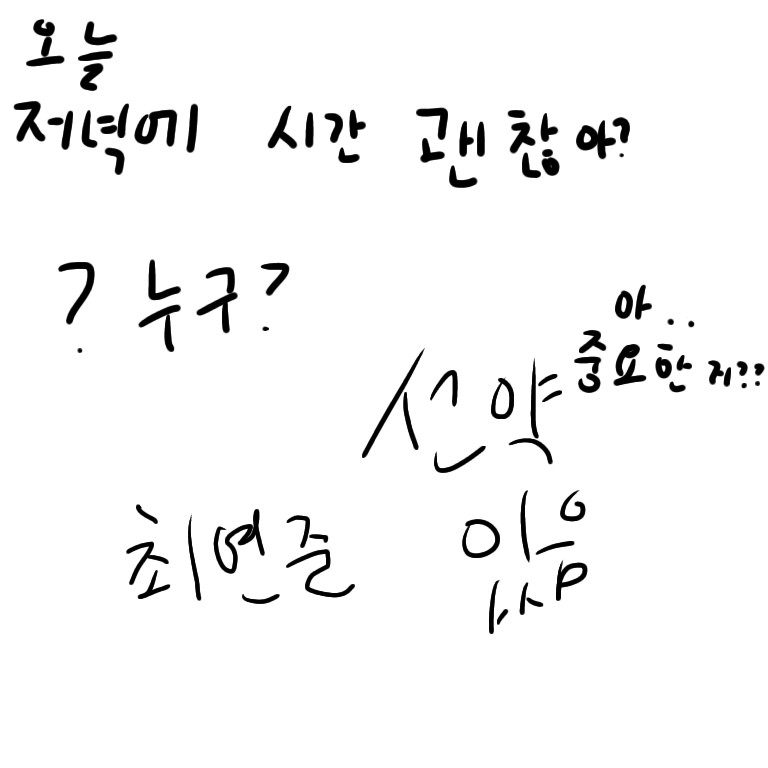 오늘
저녁에 시간 괜찮아?
? 누구?
아..
중요한지??
선약
있음
최연준